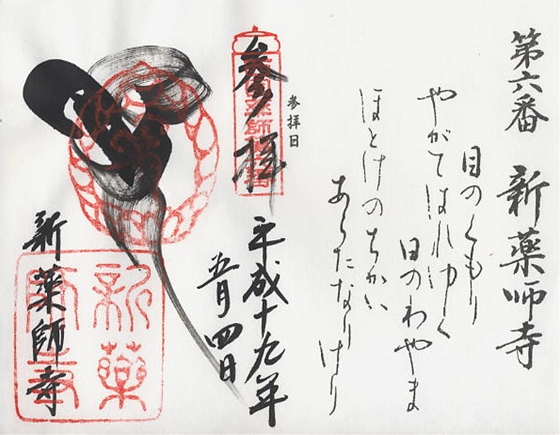 第六番 新薬師寺
目のくもり
やがてはれゆく
日のわやま
ほとけのちかい
あらたなりけり
参拝日
参拝
平成十九年
五月四日
新薬師寺
新薬師寺